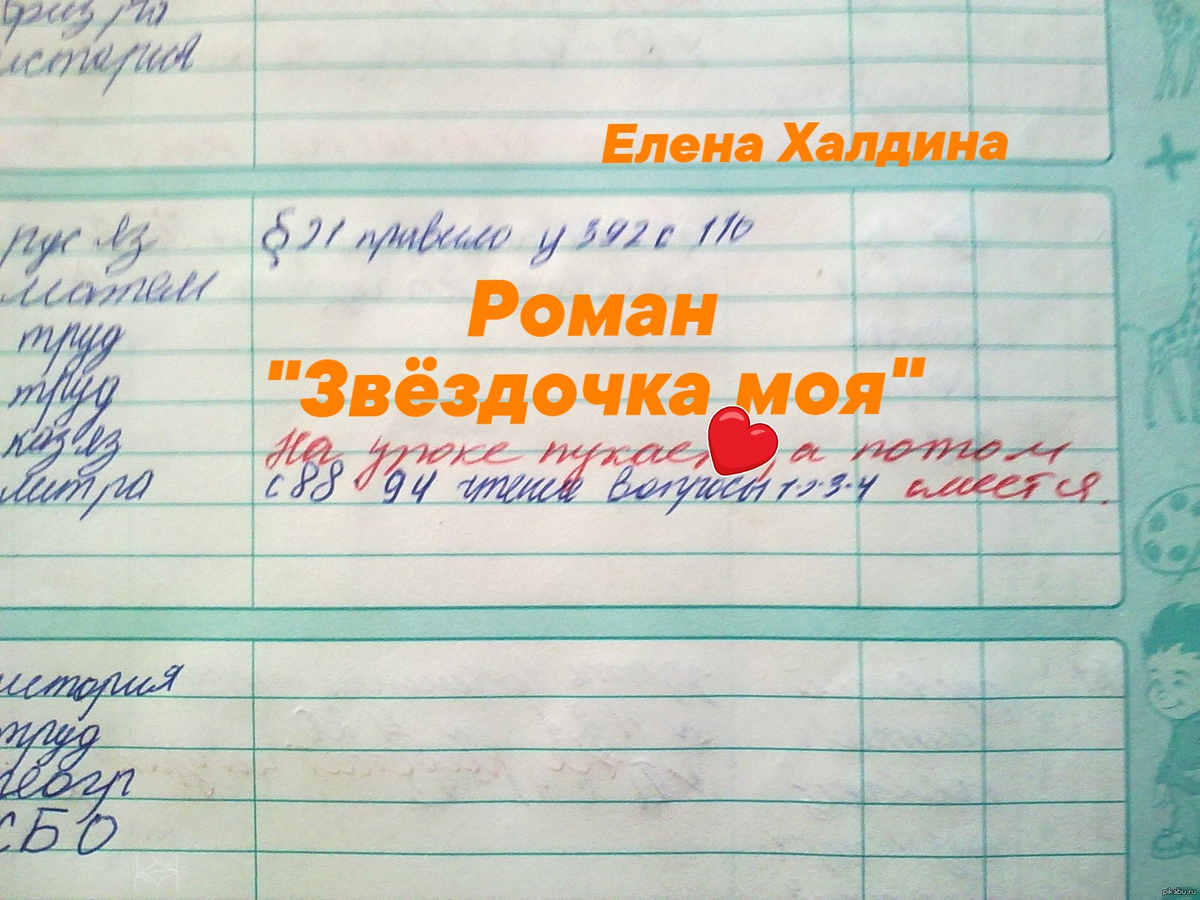 физ ра
история
Елена Халдина
рус яз § 21 правило у 392 с 116
матем
Роман
труд
"Звёздочка моя"
труд
каз яз На уроке пукает, а потом
смеется.
литра с 88 94 чтение вопросы 1-2-3-4
история
труд
геогр
СБО
pikabu.ru